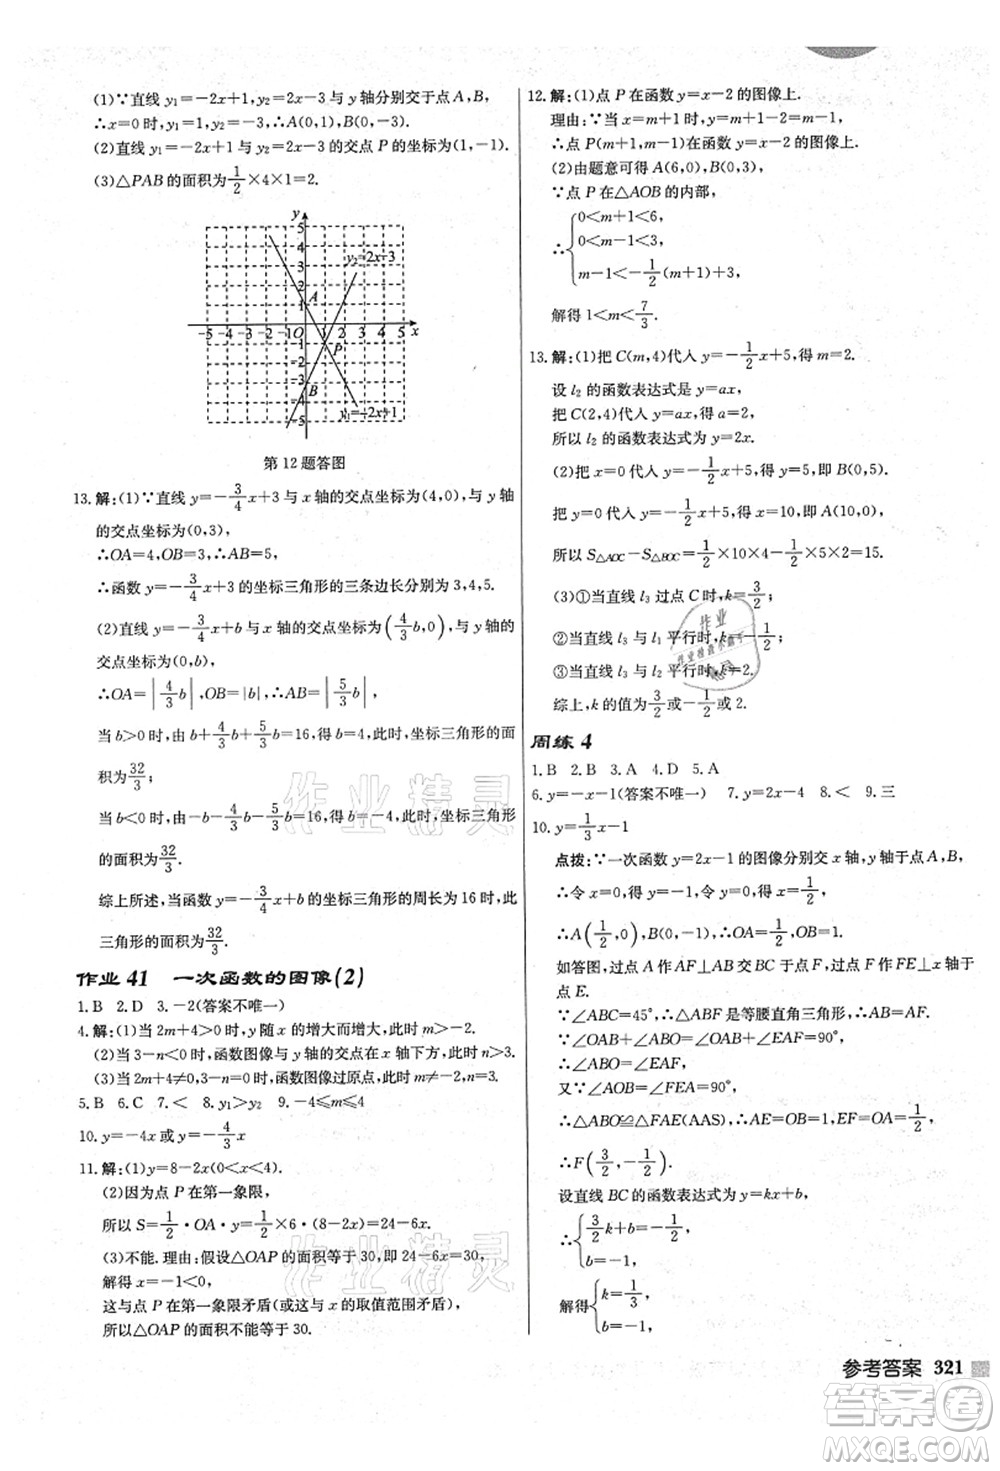 (1)∵直线 y₁=-2x+1, y₂=2x-3 与 y 轴分别交于点 A, B,
∴x=0 时, y₁=1, y₂=-3, ∴A(0,1), B(0,-3).
(2)直线 y₁=-2x+1 与 y₂=2x-3 的交点 P 的坐标为(1,-1).
(3)△PAB 的面积为 1/2 ×4×1=2.
y
5
4
3
2
1
y₂=2x-3
A
-5 -4 -3 -2 -1 O 1 2 3 4 5 x
-1
P
-2
-3
B
-4
-5
y₁=-2x+1
第 12 题答图
13. 解:(1)∵直线 y=-3/4 x+3 与 x 轴的交点坐标为(4,0), 与 y 轴
的交点坐标为(0,3),
∴OA=4, OB=3, ∴AB=5,
∴函数 y=-3/4 x+3 的坐标三角形的三条边长分别为 3,4,5.
(2)直线 y=-3/4 x+b 与 x 轴的交点坐标为(4/3 b,0), 与 y 轴的
交点坐标为(0,b),
∴OA=|4/3 b|, OB=|b|, ∴AB=|5/3 b|,
当 b>0 时, b+4/3 b+5/3 b=16, 得 b=4, 此时, 坐标三角形的面
积为 32/3;
当 b<0 时, -b-4/3 b-5/3 b=16, 得 b=-4, 此时, 坐标三角形
的面积为 32/3.
综上所述, 当函数 y=-3/4 x+b 的坐标三角形的周长为 16 时, 此
三角形的面积为 32/3.
作业 41 一次函数的图像(2)
1. B 2. D 3. -2(答案不唯一)
4. 解:(1)当 2m+4>0 时, y 随 x 的增大而增大, 此时 m>-2.
(2)当 3-n<0 时, 函数图像与 y 轴的交点在 x 轴下方, 此时 n>3.
(3)当 2m+4≠0, 3-n=0 时, 函数图像过原点, 此时 m≠-2, n=3.
5. B 6. C 7. < 8. y₁>y₂ 9. -4≤m≤4
10. y=-4x 或 y=-4/3 x
11. 解:(1)y=8-2x(0<x<4).
(2)因为点 P 在第一象限,
所以 S=1/2 · OA · y=1/2 ×6·(8-2x)=24-6x.
(3)不能. 理由: 假设△OAP 的面积等于 30, 即 24-6x=30,
解得 x=-1<0,
这与点 P 在第一象限矛盾(或这与 x 的取值范围矛盾),
所以△OAP 的面积不能等于 30.
12. 解:(1)点 P 在函数 y=x-2 的图像上.
理由:∵当 x=m+1 时, y=m+1-2=m-1,
∴点 P(m+1,m-1)在函数 y=x-2 的图像上.
(2)由题意可得 A(6,0), B(0,3).
∵点 P 在△AOB 的内部,
∴{0<m+1<6,
0<m-1<3,
m-1<-1/2(m+1)+3,
解得 1<m<7/3.
13. 解:(1)把 C(m,4)代入 y=-1/2 x+5, 得 m=2.
设 l₂ 的函数表达式为 y=ax,
把 C(2,4)代入 y=ax, 得 a=2,
所以 l₂ 的函数表达式为 y=2x.
(2)把 x=0 代入 y=-1/2 x+5, 得 y=5, 即 B(0,5),
把 y=0 代入 y=-1/2 x+5, 得 x=10, 即 A(10,0),
所以 S△AOC-S△BOC=1/2×10×4-1/2×5×2=15.
(3)①当直线 l₃ 过点 C 时, k=3/2;
②当直线 l₃ 与 l₁ 平行时, k=-1/2;
③当直线 l₃ 与 l₂ 平行时, k=2.
综上, k 的值为 3/2 或 -1/2 或 2.
周练 4
1. B 2. B 3. A 4. D 5. A
6. y=-x-1(答案不唯一) 7. y=2x-4 8. < 9. 三
10. y=1/3 x-1
点拨:∵一次函数 y=2x-1 的图像分别交 x 轴, y 轴于点 A, B,
∴令 x=0, 得 y=-1, 令 y=0, 得 x=1/2,
∴A(1/2,0), B(0,-1), ∴OA=1/2, OB=1.
如答图, 过点 A 作 AF⊥AB 交 BC 于点 F, 过点 F 作 FE⊥x 轴于
点 E.
∵∠ABC=45°, ∴△ABF 是等腰直角三角形, ∴AB=AF.
∵∠OAB+∠ABO=∠OAB+∠EAF=90°,
∴∠ABO=∠EAF.
又∵∠AOB=∠FEA=90°,
∴△ABO≌△FAE(AAS), ∴AE=OB=1, EF=OA=1/2,
∴F(3/2,-1/2).
设直线 BC 的函数表达式为 y=kx+b,
∴{3/2 k+b=-1/2,
b=-1,
解得{k=1/3,
b=-1,
参考答案 321
作业精灵
作业精灵
作业
作业检查小帮手
答案卷
MXQE.COM